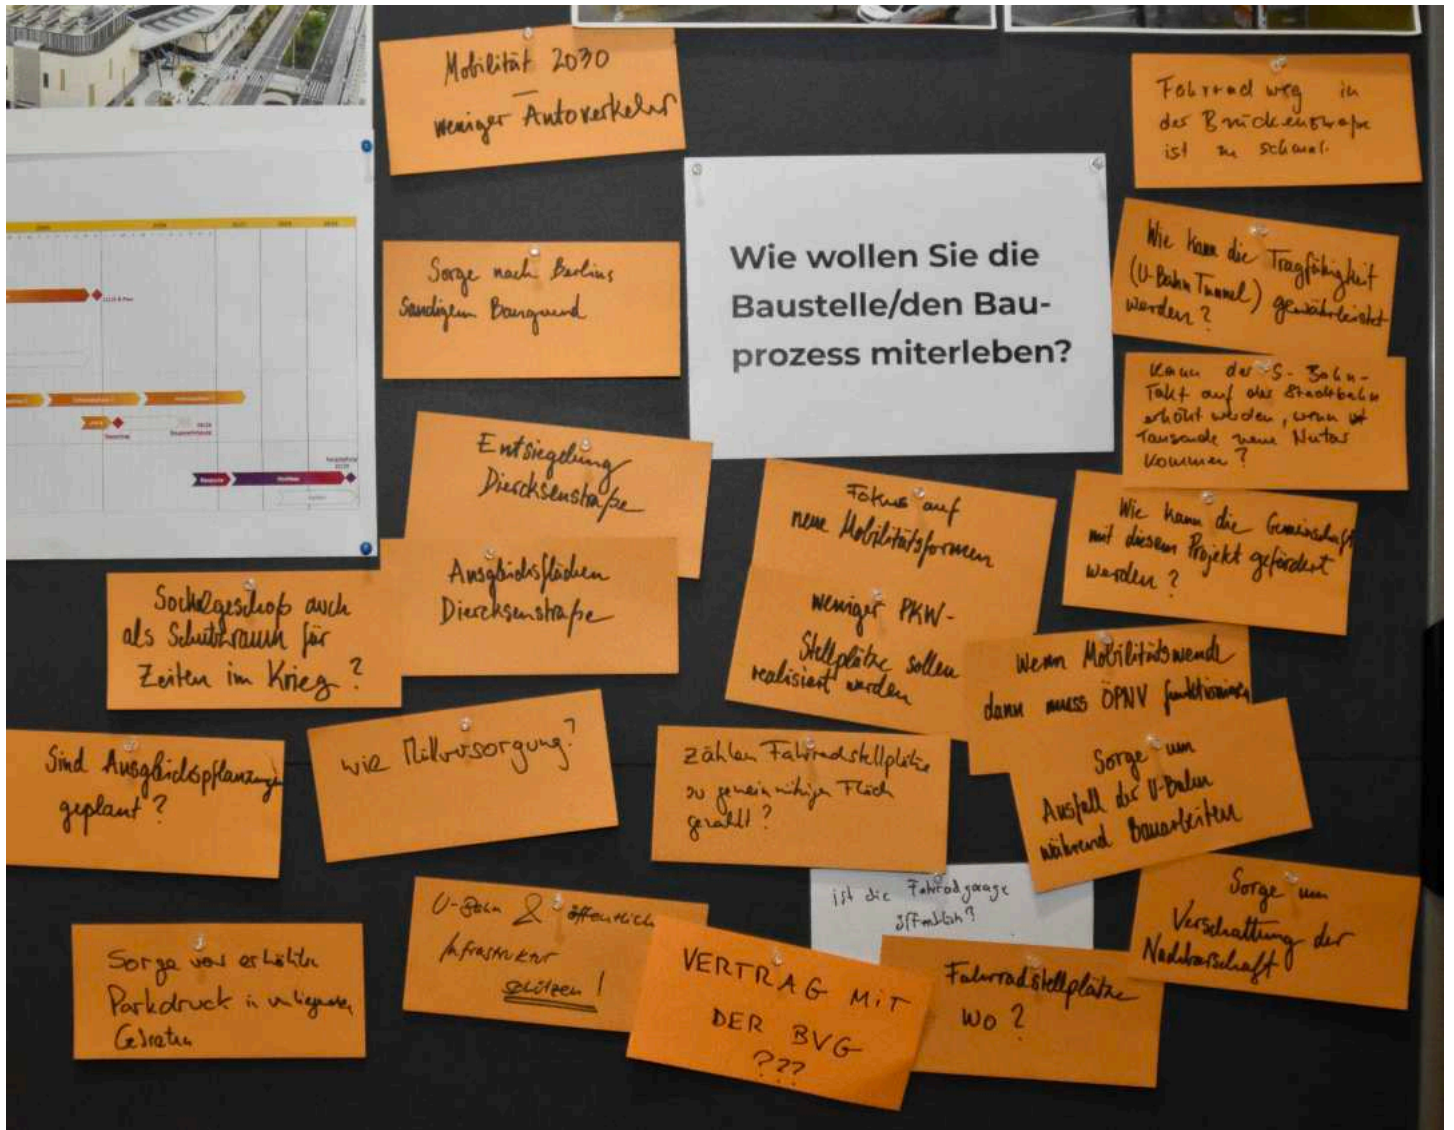 Mobilität 2030
–
weniger Autoverkehr
Fahrradweg in
der Brückenstraße
ist zu schmal.
Wie wollen Sie die
Baustelle/den Bau-
prozess miterleben?
Sorge nach Berlins
sandigem Baugrund
Wie kann die Tragfähigkeit
(U-Bahn Tunnel) gewährleistet
werden?
Kann der S-Bahn-
Takt auf der Stadtbahn
erhöht werden, wenn
Tausende neue Nutzer
kommen?
Entsiegelung
Diercksenstraße
Ausgleichsflächen
Diercksenstraße
Fokus auf
neue Mobilitätsformen
weniger PKW-
Stellplätze sollen
realisiert werden
Wie kann die Gemeinschaft
mit diesem Projekt gefördert
werden?
Sockelgeschoß auch
als Schutzraum für
Zeiten im Krieg?
Wenn Mobilitätswende
dann muss ÖPNV funktionieren
Sind Ausgleichspflanzungen
geplant?
wie Müllversorgung?
zählen Fahrradstellplätze
zu gemeinnützigen Fläch
gezählt?
Sorge um
Ausfall der U-Bahn
während Bauarbeiten
ist die Fahrradgarage
öffentlich?
Sorge um
Verschattung der
Nachbarschaft
Sorge vor erhöhten
Parkdruck in umliegenden
Gebieten
U-Bahn & öffentlich
Infrastruktur
schützen!
VERTRAG MIT
DER BVG
???
Fahrradstellplätze
WO?